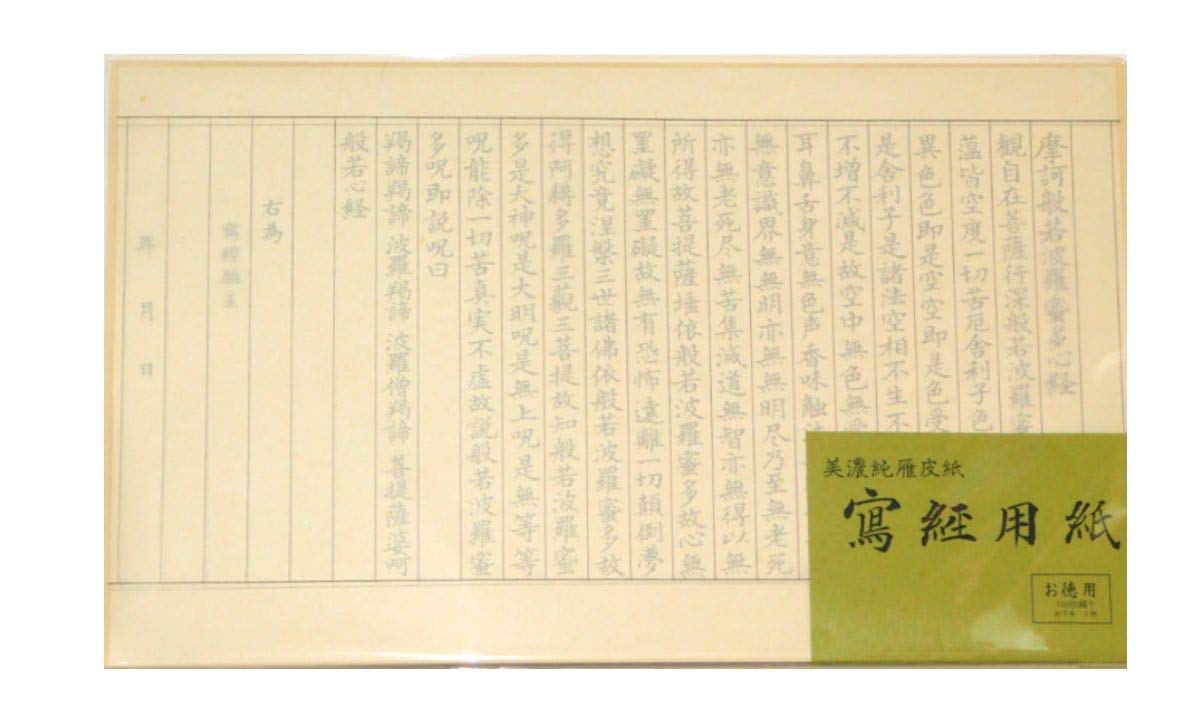 摩訶般若波羅蜜多心経
観自在菩薩行深般若波羅蜜
薀皆空度一切苦厄舎利子色
異色色即是空空即是色受
是舎利子是諸法空相不生不
不増不減是故空中無色無受
耳鼻舌身意無色声香味触法
無意識界無無明亦無無明尽乃至無老死
亦無老死尽無苦集滅道無智亦無得以無
所得故菩提薩埵依般若波羅蜜多故心無
罣礙無罣礙故無有恐怖遠離一切顛倒夢
想究竟涅槃三世諸佛依般若波羅蜜多故
得阿耨多羅三藐三菩提故知般若波羅蜜
多是大神呪是大明呪是無上呪是無等等
呪能除一切苦真実不虚故説般若波羅蜜
多呪即説呪曰
羯諦羯諦 波羅羯諦 波羅僧羯諦 菩提薩婆訶
般若心経
右為
寫經願主
年 月 日
美濃純雁皮紙
寫經用紙
お徳用
100枚綴り
お手本 1枚